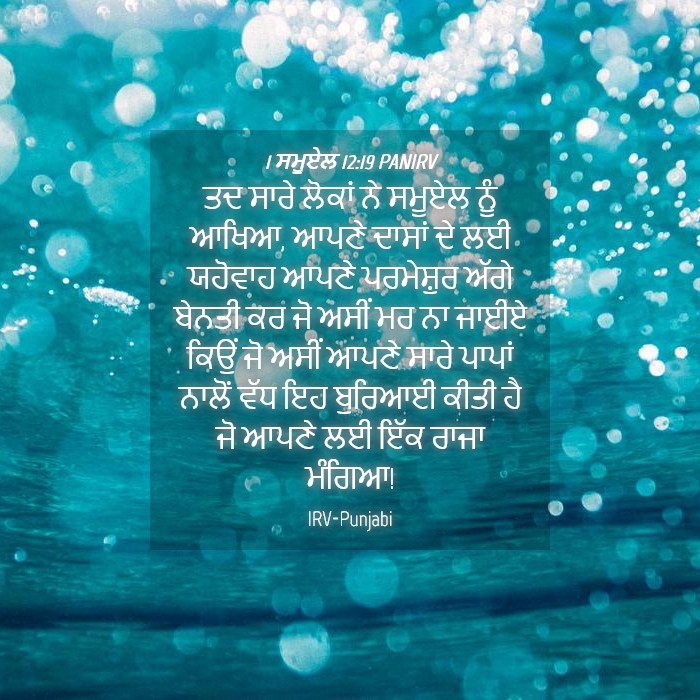 1 ਸਮੂਏਲ 12:19 PANIRV
ਤਦ ਸਾਰੇ ਲੋਕਾਂ ਨੇ ਸਮੂਏਲ ਨੂੰ
ਆਖਿਆ, ਆਪਣੇ ਦਾਸਾਂ ਦੇ ਲਈ
ਯਹੋਵਾਹ ਆਪਣੇ ਪਰਮੇਸ਼ੁਰ ਅੱਗੇ
ਬੇਨਤੀ ਕਰ ਜੋ ਅਸੀਂ ਮਰ ਨਾ ਜਾਈਏ
ਕਿਉਂ ਜੋ ਅਸੀਂ ਆਪਣੇ ਸਾਰੇ ਪਾਪਾਂ
ਨਾਲੋਂ ਵੱਧ ਇਹ ਬੁਰਿਆਈ ਕੀਤੀ ਹੈ
ਜੋ ਆਪਣੇ ਲਈ ਇੱਕ ਰਾਜਾ
ਮੰਗਿਆ!
IRV-Punjabi